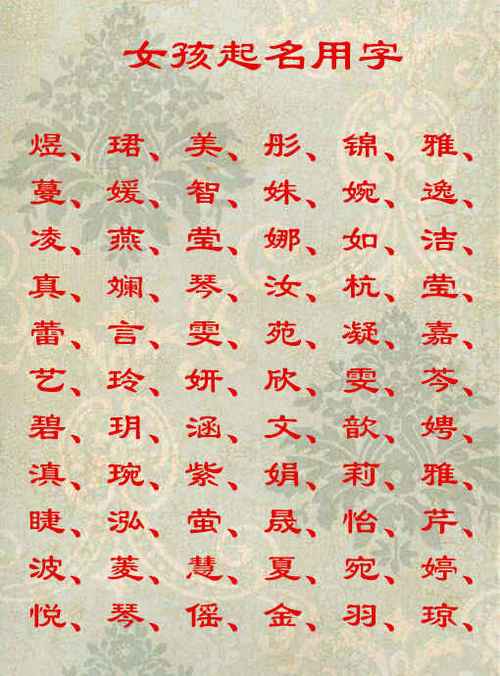 女孩起名用字
煜、珺、美、彤、锦、雅、
蔓、媛、智、姝、婉、逸、
凌、燕、莹、娜、如、洁、
真、娴、琴、汝、杭、莹、
蕾、言、雯、苑、凝、嘉、
艺、玲、妍、欣、雯、芩、
碧、玥、涵、文、歆、娉、
滇、琬、紫、娟、莉、雅、
睫、泓、萤、晟、怡、芹、
波、菱、慧、夏、宛、婷、
悦、琴、傜、金、羽、琼、